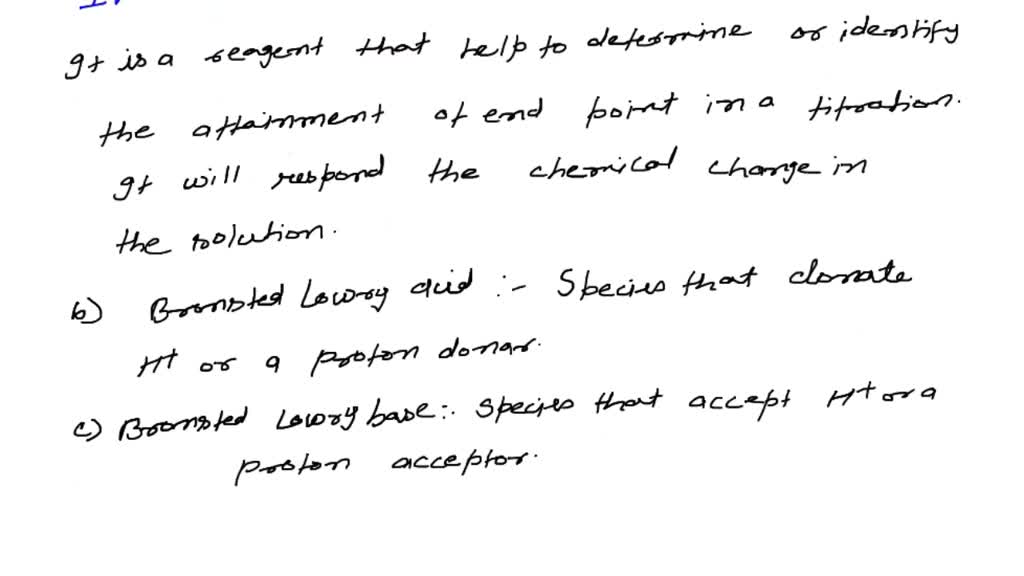 It is a reagent that help to determine or identify
the attainment of end point in a titration.
It will respond the chemical change in
the solution.
b) Bronsted Lowry acid :- Species that donate
H+ or a proton donar.
c) Bronsted Lowry base:- Species that accept H+ or a
proton acceptor.